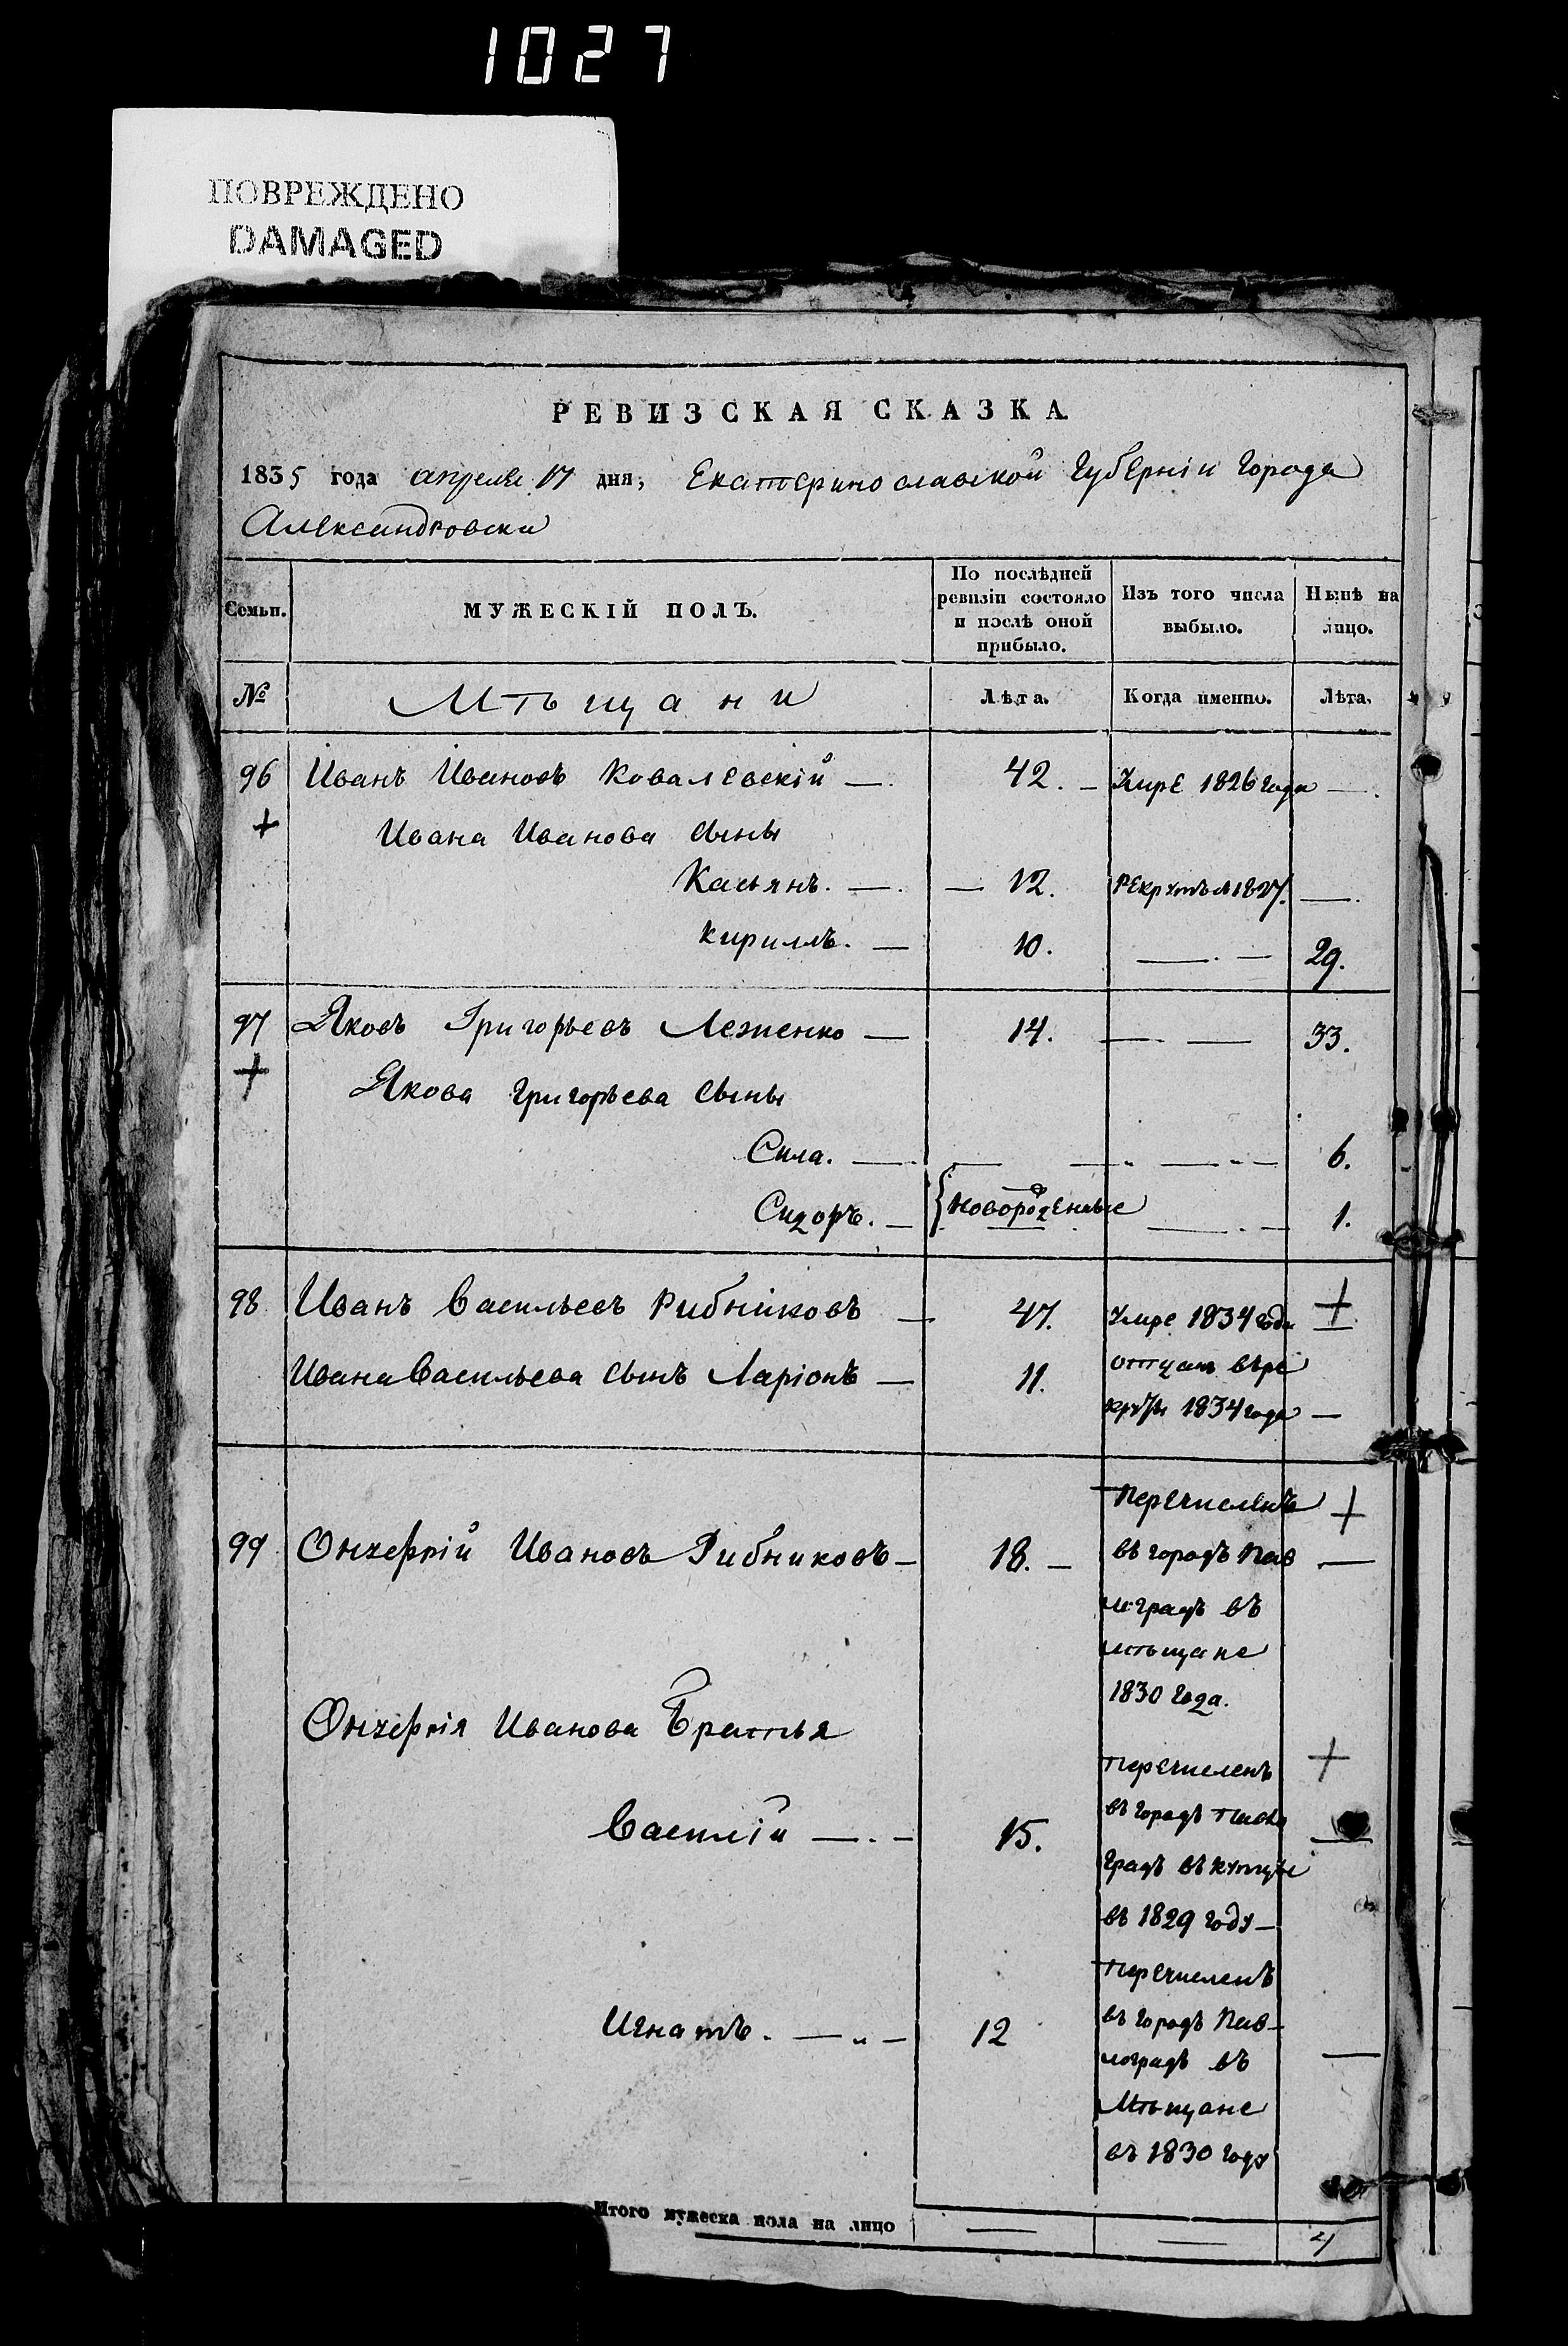 1027
ПОВРЕЖДЕНО
DAMAGED
РЕВИЗСКАЯ СКАЗКА
1835 года апреля 17 дня, Екатеринославской Губерніи Города
Александровска
Семьи. МУЖЕСКІЙ ПОЛЪ. По послѣдней ревизіи состояло и послѣ оной прибыло. Изъ того числа выбыло. Ныпѣ на лицо.
№ Мѣщани Лѣта. Когда именно. Лѣта.
96 Иванъ Ивановъ Ковалевскій — 42. — Умре 1826 года —
+ Ивана Иванова сыны
Касьянъ. — — 12. 1827. —
Кириллъ. — 10. — 29.
97 Яковъ Григорьевъ Леженко — 14. — — 33.
+ Якова Григорьева сыны
Сила. — — — — 6.
Сидоръ. — { Новорозенные — 1.
98 Иванъ Васильевъ Рибниковъ — 47. Умре 1834 года +
Ивана Васильева сынъ Ларіонъ — 11. отданъ въ ре
круты 1834 года —
Перечисленъ +
99 Онуфрій Ивановъ Рибниковъ — 18. — въ городъ Пав —
лградъ въ
мѣщане
1830 года.
Онуфрія Иванова Братья
перечисленъ +
Василій — 15. въ городъ Павло —
градъ въ купцы
въ 1829 году —
перечисленъ
Игнатъ. — 12 въ городъ Пав-
лоградъ въ —
Мѣщане
въ 1830 году
Итого мужеска пола на лицо — — 4